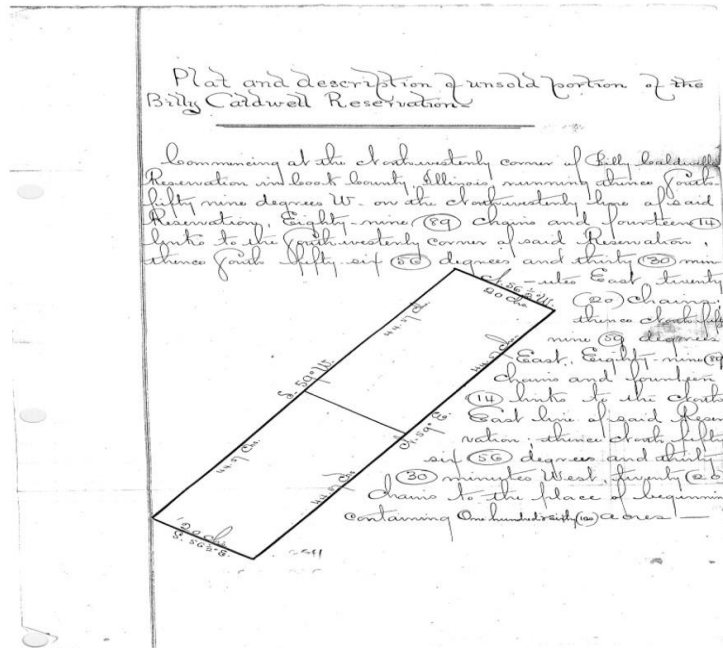 Plat and description of unsold portion of the
Billy Caldwell Reservation
Commencing at the Northwesterly corner of Billy Caldwells
Reservation in Cook County Illinois, running thence South
fifty nine degrees W. on the Northwesterly line of said
Reservation, Eighty-nine (89) chains and fourteen (14)
links to the Southwesterly corner of said Reservation,
thence South fifty six (56) degrees and thirty (30) min
-utes East twenty
(20) chains;
thence North fifty
nine 59 degrees
East, Eighty-nine (89)
chains and fourteen
(14) links to the North
East line of said Reser
vation; thence North fifty
six (56) degrees and thirty
(30) minutes West, twenty (20)
chains to the place of beginning
containing One hundred sixty (160) acres —
N. 56½° W.
20 Chs.
44.57 Chs.
S. 59° W.
44.57 Chs.
44.57 Chs.
N. 59° E.
44.57 Chs
20 Chs
S. 56½° E.